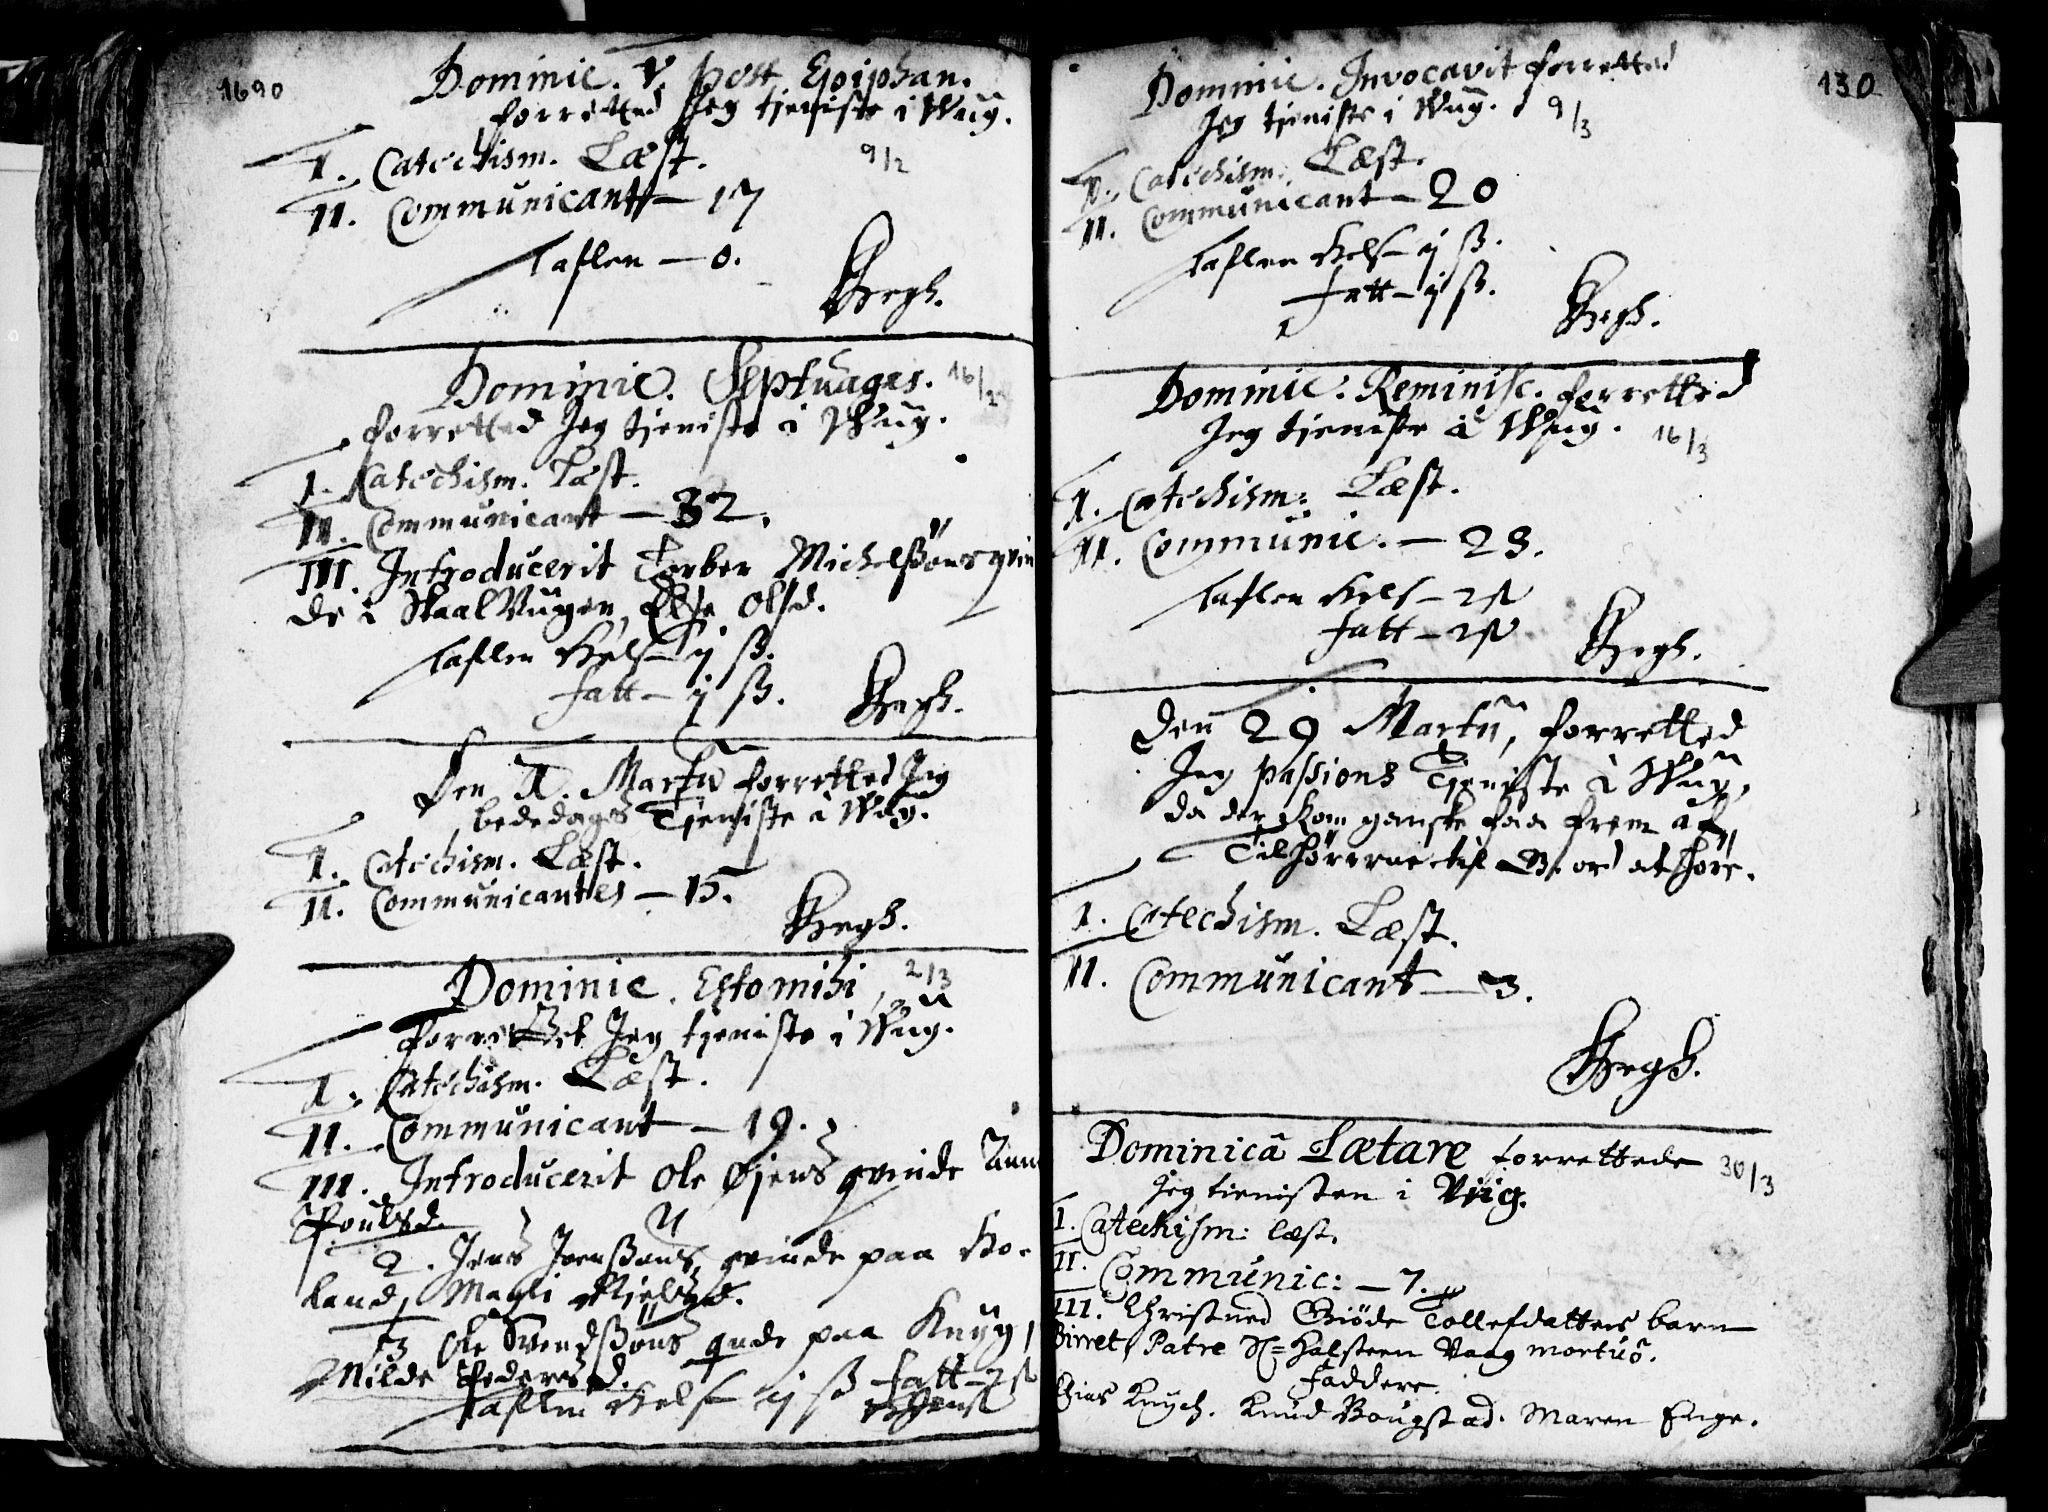 1690
Dominic. V post Epiphan.
forretted Jeg tjeniste i Wüg.
9/2
I. Catechism. Læst.
II. Communicant — 17
Taflen — 0.
Bergh.
Dominic. Septuages. 16/2
forretted Jeg tjeniste i Wüg.
I. Catechism. Læst.
II. Communicant — 32.
III. Introducerit Torber Michelßöns qvin
de i Skaal Vügen, Else Olsd.
Taflen Kelf — ij ß.
fatt — ij ß.
Bergh.
Den 1. Martij forretted Jeg
bededags Tjeniste i Wüg.
I. Catechism. Læst.
II. Communicantes — 15.
Bergh.
Dominic. Estomihi, 2/3
forrettet Jeg tjeniste i Wüg.
I. Catechism. Læst.
II. Communicant — 19.
III. Introducerit Ole Øjens qvinde Anne
Poulsd.
2. Jens Jvenßöns qvinde paa Ho-
land, Magli
3 Ole Svendßöns qvde paa Knüg,
Milde Pedersd.
Taflen Kelf ij ß fatt — 2 ß
130
Dominic. Invocavit forretted
Jeg tjeniste i Wüg. 9/3
I. Catechism. Læst.
II. Communicant — 20
Taflen Kelf — ij ß.
fatt — ij ß.
Bergh.
Dominic. Reminisc. forretted
Jeg tjeniste i Wüg. 16/3
I. Catechism: Læst.
II. Communic. — 23.
Taflen Kelf — 2 ß
fatt — 2 ß
Bergh.
Den 29 Martij, forretted
Jeg passions Tjeniste i Wüg,
da der Kom ganske faa frem af
Tilhörerne til G. ord at höre.
I. Catechism. Læst.
II. Communicant — 3.
Bergh.
Dominicâ Lætare forrettede 30/3
Jeg tienisten i Viig.
I. Catechism: læst.
II. Communic: — 7.
III. Christned Giöde Tollefdatters barn
Birret, Patre Sl= Halsteen Vaag mortuô.
Faddere.
Elias Knych. Knud Bougstad. Maren Enge.